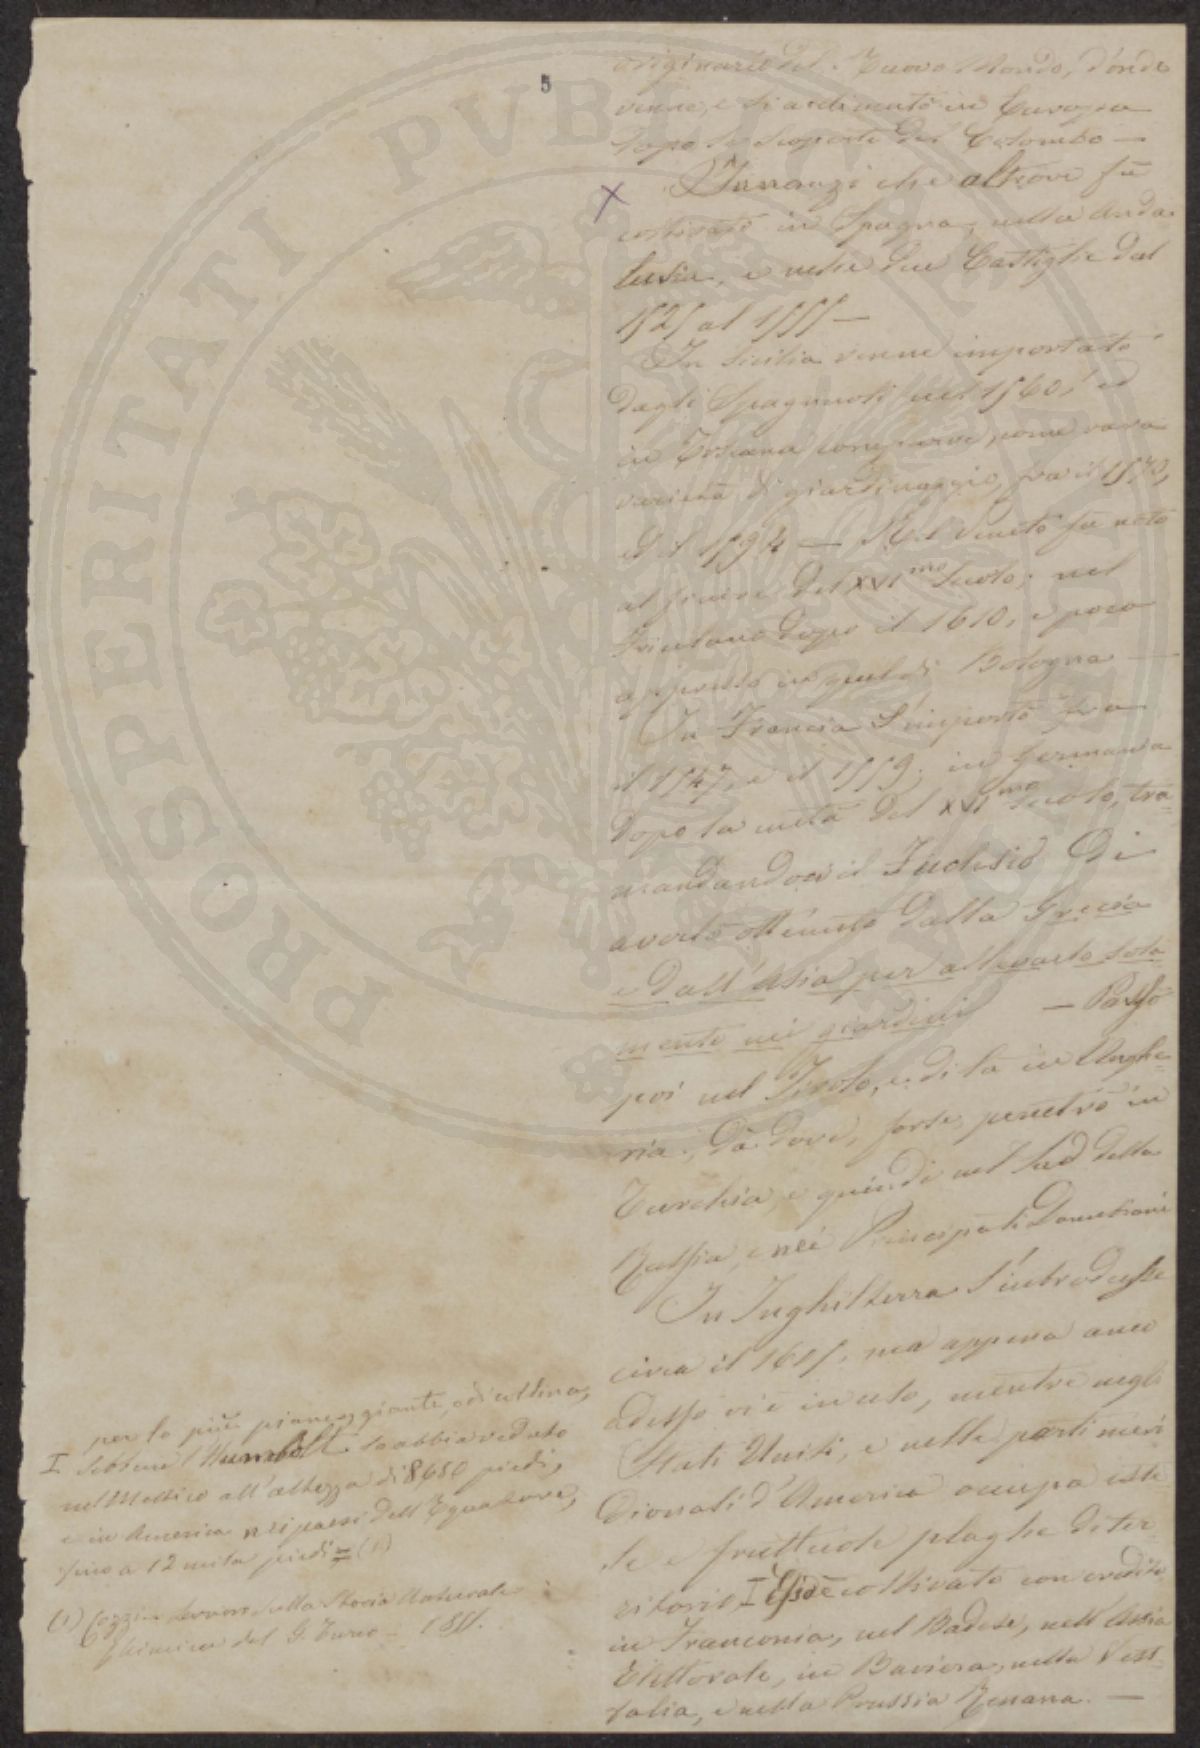 5
originario del Nuovo Mondo, d'onde
venne, e si acclimatò in Europa
dopo le scoperte del Colombo —
Innanzi che altrove fu
coltivato in Spagna, nella Anda-
lusia, e nelle due Castiglie dal
1525 al 1555 —
In Sicilia venne importato
dagli Spagnuoli nel 1560, ed
in Toscana comparve come rara
varietà di giardinaggio, fra il 1570,
ed il 1594 — Nel Veneto fu noto
al finire del XVI mo secolo; nel
Friulano dopo il 1610, e poco
appresso in quel di Bologna —
In Francia s'importò fra
il 1547, e il 1559; in Germania
dopo la metà del XVI mo secolo, tra-
mandandoci il Fuchsio di
averlo ottenuto dalla Grecia
e dall'Asia per allevarlo sola
mente nei giardini — Passò
poi nel Tirolo, e di là in Unghe-
ria, da dove, forse, penetrò in
Turchia, e quindi nel Sud della
Russia, e nei Principati Danubiani
In Inghilterra s'introdusse
circa il 1615, ma appena anco
adesso vi è in uso, mentre negli
Stati Uniti, e nelle parti meri
dionali d'America occupa este
se e fruttuose plaghe di ter
ritorio I Esso è coltivato con credito
in Franconia, nel Badese, nell'Assia
Elettorale, in Baviera, nella Vest-
falia, e nella Prussia Renana. —
per lo più pianeggiante, o di collina,
I sebbene l'Humboldt lo abbia veduto
nel Messico all'altezza di 8,680 piedi,
e in America nei paesi dell'Equatore,
fino a 12 mila piedi = (1)
(1) sulla Storia Naturale
Chimica del G. Turco — 1855.
PROSPERITATI PVBLICAE